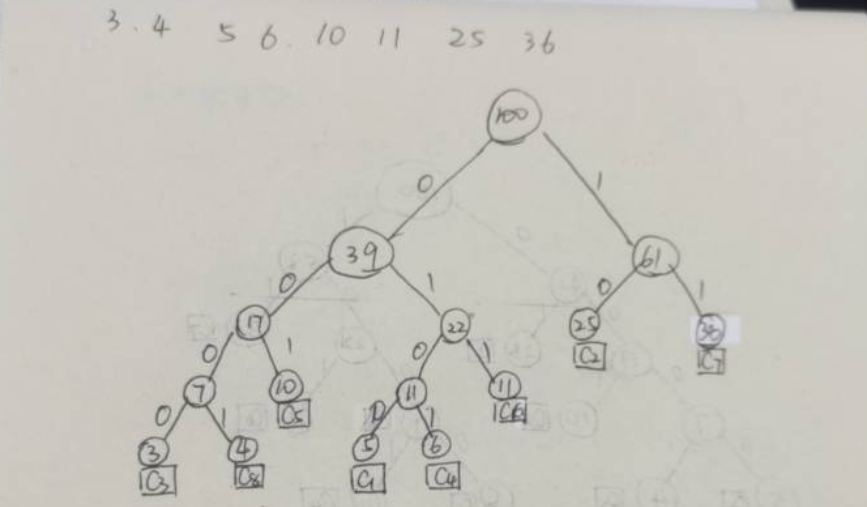 3 . 4 5 6 . 10 11 25 36
100
0 1
39 61
0 1 0 1
17 22 25 36
C2 C7
0 1 0 1
7 10 11 11
C5 C6
0 1 0 1
3 4 5 6
C3 C8 C1 C4